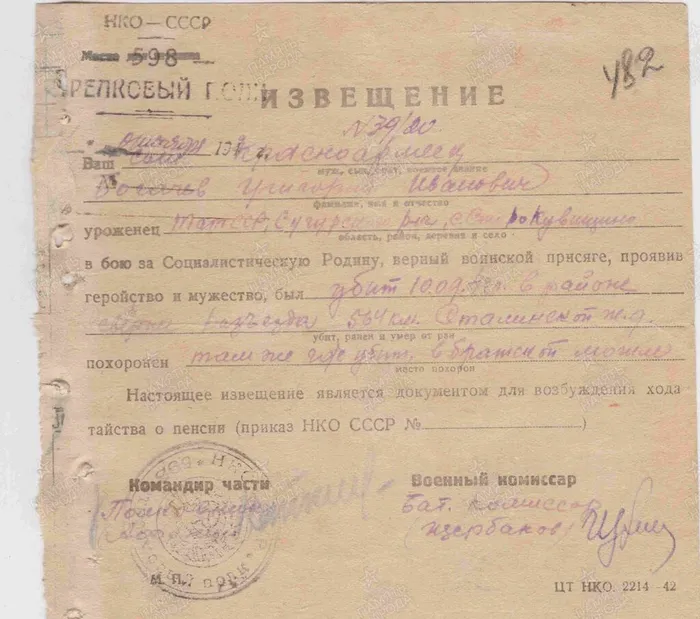 НКО — СССР
598
СТРЕЛКОВЫЙ ПОЛК
482
ИЗВЕЩЕНИЕ
N 39/20
194 г.
Ваш сын красноармеец
муж, сын, брат, военное звание
Григорий Иванович
фамилия, имя и отчество
уроженец ТатССР, р-на, с.
область, район, деревня и село
в бою за Социалистическую Родину, верный воинской присяге, проявив
геройство и мужество, был убит 10.09.42г. в районе
разъезда 564 км. Сталинской ж.д.
убит, ранен и умер от ран
похоронен там же где убит, в братской могиле
место похорон
Настоящее извещение является документом для возбуждения хода
тайства о пенсии (приказ НКО СССР №)
Командир части
Военный комиссар
Бат. комиссар
(Щербаков)
М. П.
ЦТ НКО. 2214—42